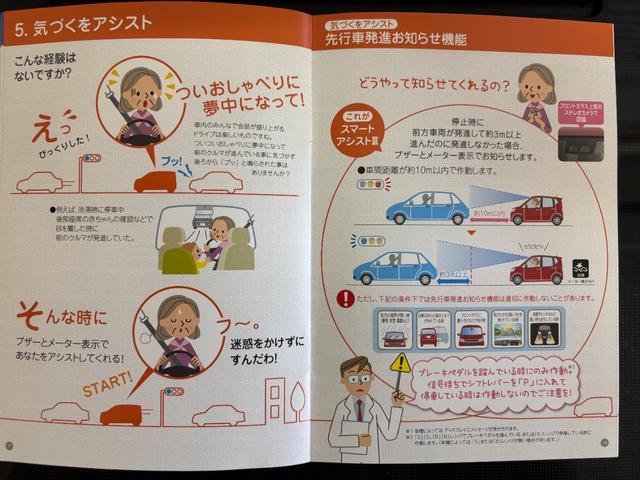 5. 気づくをアシスト
こんな経験は
ないですか?
えっ
びっくりした!
ついおしゃべりに
夢中になって!
車内のみんなで会話が盛り上がる
ドライブは楽しいものですね。
ついついおしゃべりに夢中になって
前のクルマが進んでいる事に気づかず
後ろから「プッ」と鳴らされた事は
ありませんか?
プッ!
●例えば、渋滞時に停車中
後部座席の赤ちゃんの確認などで
目を離した時に
前のクルマが発進していた。
そんな時に
ブザーとメーター表示で
あなたをアシストしてくれる!
START!
フ〜。
迷惑をかけずに
すんだわ!
気づくをアシスト
先行車発進お知らせ機能
どうやって知らせてくれるの?
フロントガラス上部の
ステレオカメラで
認識
これが
スマート
アシストⅢ
停止時に
前方車両が発進して約3m以上
進んだのに発進しなかった場合、
ブザーとメーター表示でお知らせします。
●車間距離が約10m以内で作動します。
約10m以内
約3m以上
ピピピッ
ただし、下記の条件下では先行車発進お知らせ機能は適切に作動しないことがあります。
ブレーキペダルを踏んでいる時にのみ作動※2
信号待ちでシフトレバーを「P」に入れて
停車している時は作動しないのでご注意を!
※1 車種によっては、ディスプレイにメッセージが表示されます。